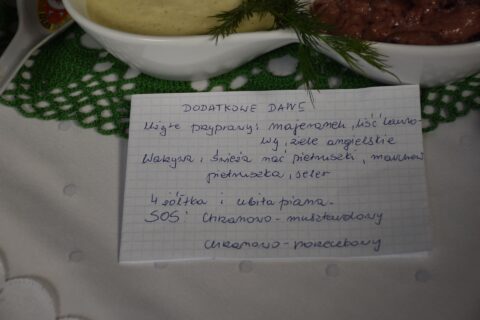 DODATKOWE DANE
Użyte przyprawy: majeranek, liść lauro-
wy, ziele angielskie
Warzywa: świeża nać pietruszki, marchew
pietruszka, seler
4 żółtka i ubita piana.
SOS: Chrzanowo-musztardowy
Chrzanowo-porzeczkowy